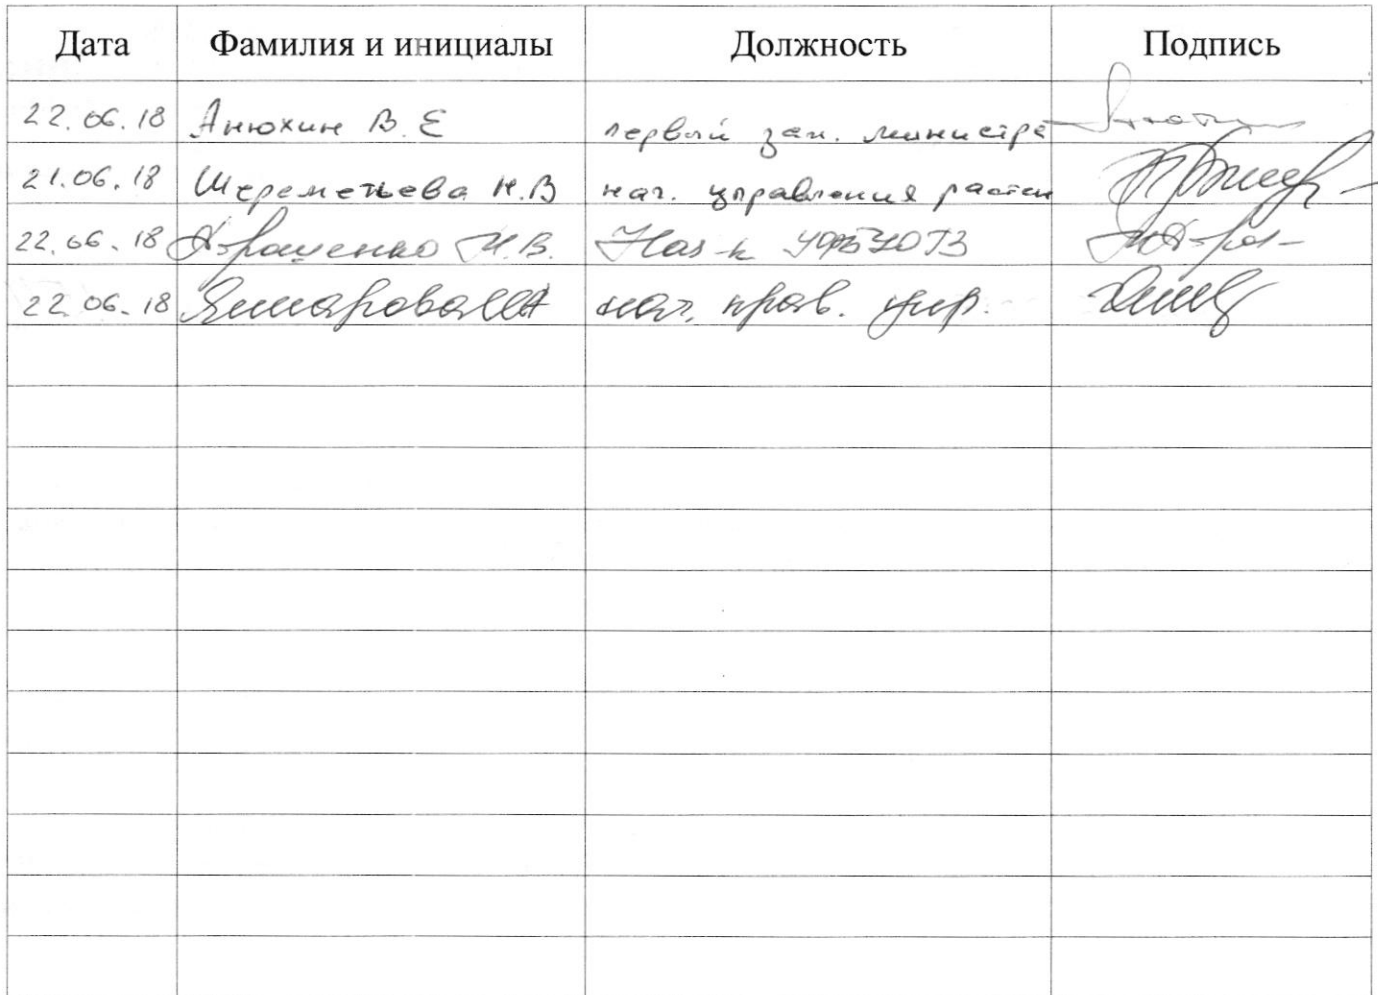 Дата Фамилия и инициалы Должность Подпись
22.06.18 Анюхин В.Е первый зам. министра
21.06.18 Шереметьева Н.В нач. управления растен
22.06.18 И.В. Нач-к
22.06.18 нач. прав. упр.